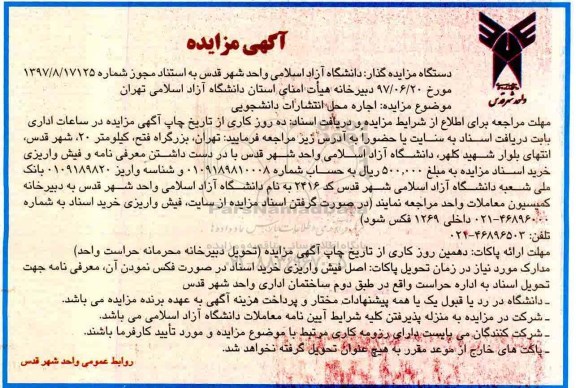 آگهی مزایده
واحد شهر قدس
دستگاه مزایده گذار: دانشگاه آزاد اسلامی واحد شهر قدس به استناد مجوز شماره ۱۳۹۷/۸/۱۷۱۲۵
مورخ ۹۷/۰۶/۲۰ دبیرخانه هیأت امنای استان دانشگاه آزاد اسلامی تهران
موضوع مزایده: اجاره محل انتشارات دانشجویی
مهلت مراجعه برای اطلاع از شرایط مزایده و دریافت اسناد: ده روز کاری از تاریخ چاپ آگهی مزایده در ساعات اداری
بابت دریافت اسناد به سایت یا حضورا به آدرس زیر مراجعه فرمایید: تهران، بزرگراه فتح، کیلومتر ۲۰، شهر قدس،
انتهای بلوار شهید کلهر، دانشگاه آزاد اسلامی واحد شهر قدس با در دست داشتن معرفی نامه و فیش واریزی
خرید اسناد مزایده به مبلغ ۵۰۰,۰۰۰ ریال به حساب شماره ۰۱۰۹۱۸۹۸۱۰۰۰۸ و شناسه واریز ۰۱۰۹۱۸۹۸۲۰ بانک
ملی شعبه دانشگاه آزاد اسلامی شهر قدس کد ۲۴۱۶ به نام دانشگاه آزاد اسلامی واحد شهر قدس به دبیرخانه
کمیسیون معاملات واحد مراجعه نمایند (در صورت گرفتن اسناد مزایده از سایت، فیش واریزی خرید اسناد به شماره
۰۲۱-۴۶۸۹۶۰۰۰ داخلی ۱۲۶۹ فکس شود)
تلفن: ۰۲۴-۴۶۸۹۶۵۰۳
مهلت ارائه پاکات: دهمین روز کاری از تاریخ چاپ آگهی مزایده (تحویل دبیرخانه محرمانه حراست واحد)
مدارک مورد نیاز در زمان تحویل پاکات: اصل فیش واریزی خرید اسناد در صورت فکس نمودن آن، معرفی نامه جهت
تحویل اسناد به اداره حراست واقع در طبق دوم ساختمان اداری واحد شهر قدس
ـ دانشگاه در رد یا قبول یک یا همه پیشنهادات مختار و پرداخت هزینه آگهی به عهده برنده مزایده می باشد.
ـ شرکت در مزایده به منزله پذیرفتن کلیه شرایط آیین نامه معاملات دانشگاه آزاد اسلامی می باشد.
ـ شرکت کنندگان می بایست دارای رزومه کاری مرتبط با موضوع مزایده و مورد تأیید کارفرما باشند.
ـ پاکت های خارج از موعد مقرر به هیچ عنوان تحویل گرفته نخواهد شد.
روابط عمومی واحد شهر قدس